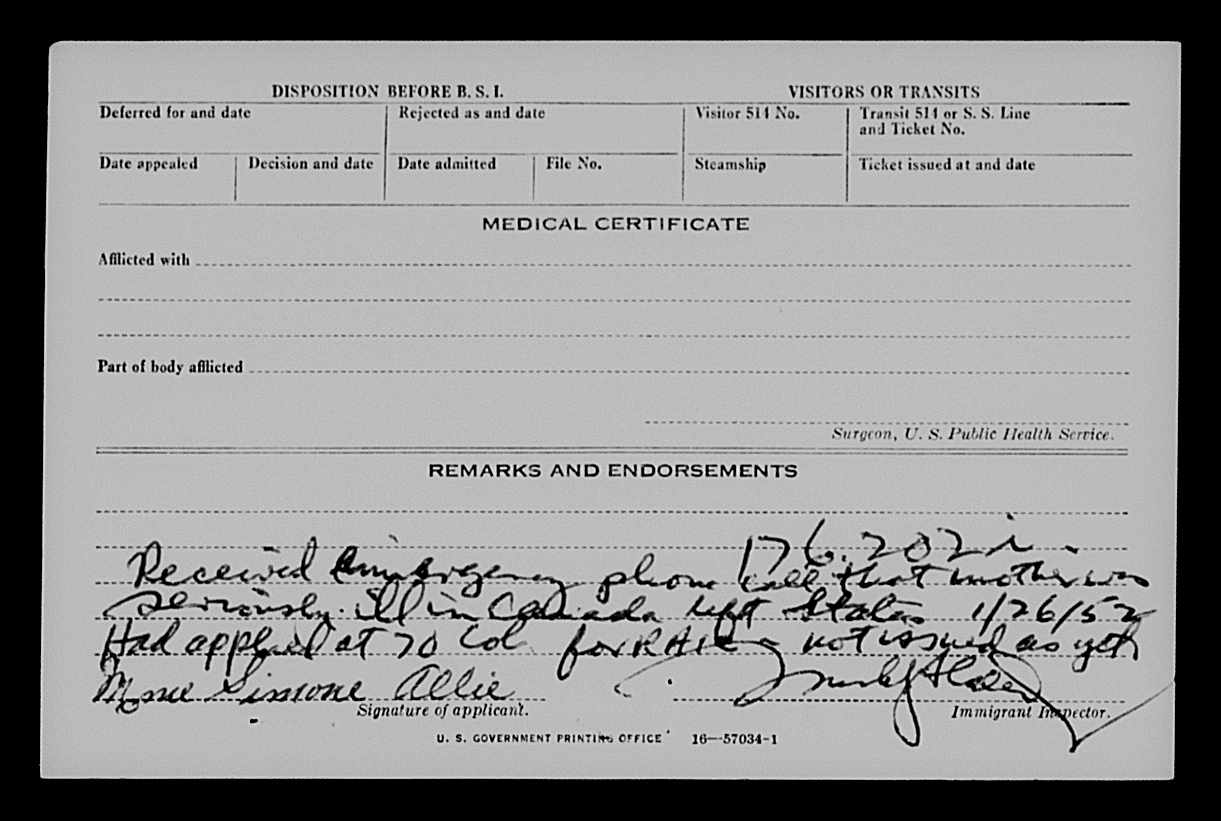 DISPOSITION BEFORE B. S. I. VISITORS OR TRANSITS
Deferred for and date Rejected as and date Visitor 514 No. Transit 514 or S. S. Line
and Ticket No.
Date appealed Decision and date Date admitted File No. Steamship Ticket issued at and date
MEDICAL CERTIFICATE
Afflicted with
Part of body afflicted
Surgeon, U. S. Public Health Service.
REMARKS AND ENDORSEMENTS
176.202
Received emergency phone call that mother was
seriously ill in Canada left States 1/26/52
Had applied at 70 Col for not issued as yet
Mme Simone Allie
Signature of applicant. Immigrant Inspector.
U. S. GOVERNMENT PRINTING OFFICE 16—57034-1